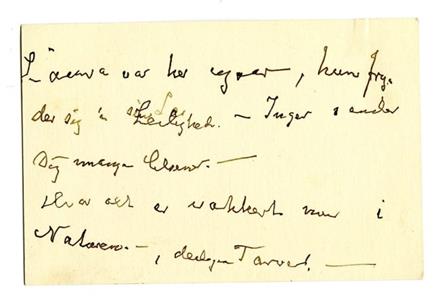 Laura var her igaar, hun fry-
der sig i sin Leilighed. – Inger sender
Dig mange hilsener. –
Hvor alt er vakkert nu i
Naturen –, deilige Farver. –